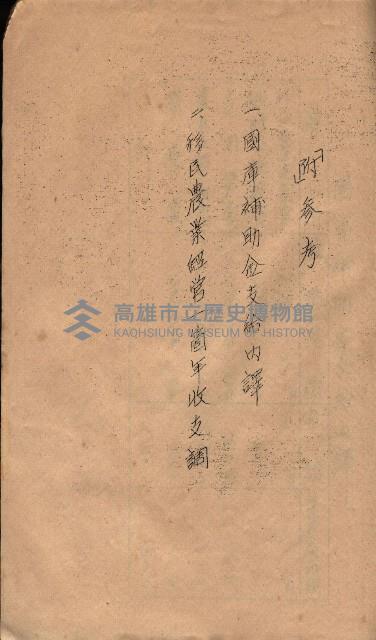 附参考
一、國庫補助金支給内譯
二、移民農業経営一箇年收支調
高雄市立歷史博物館
KAOHSIUNG MUSEUM OF HISTORY